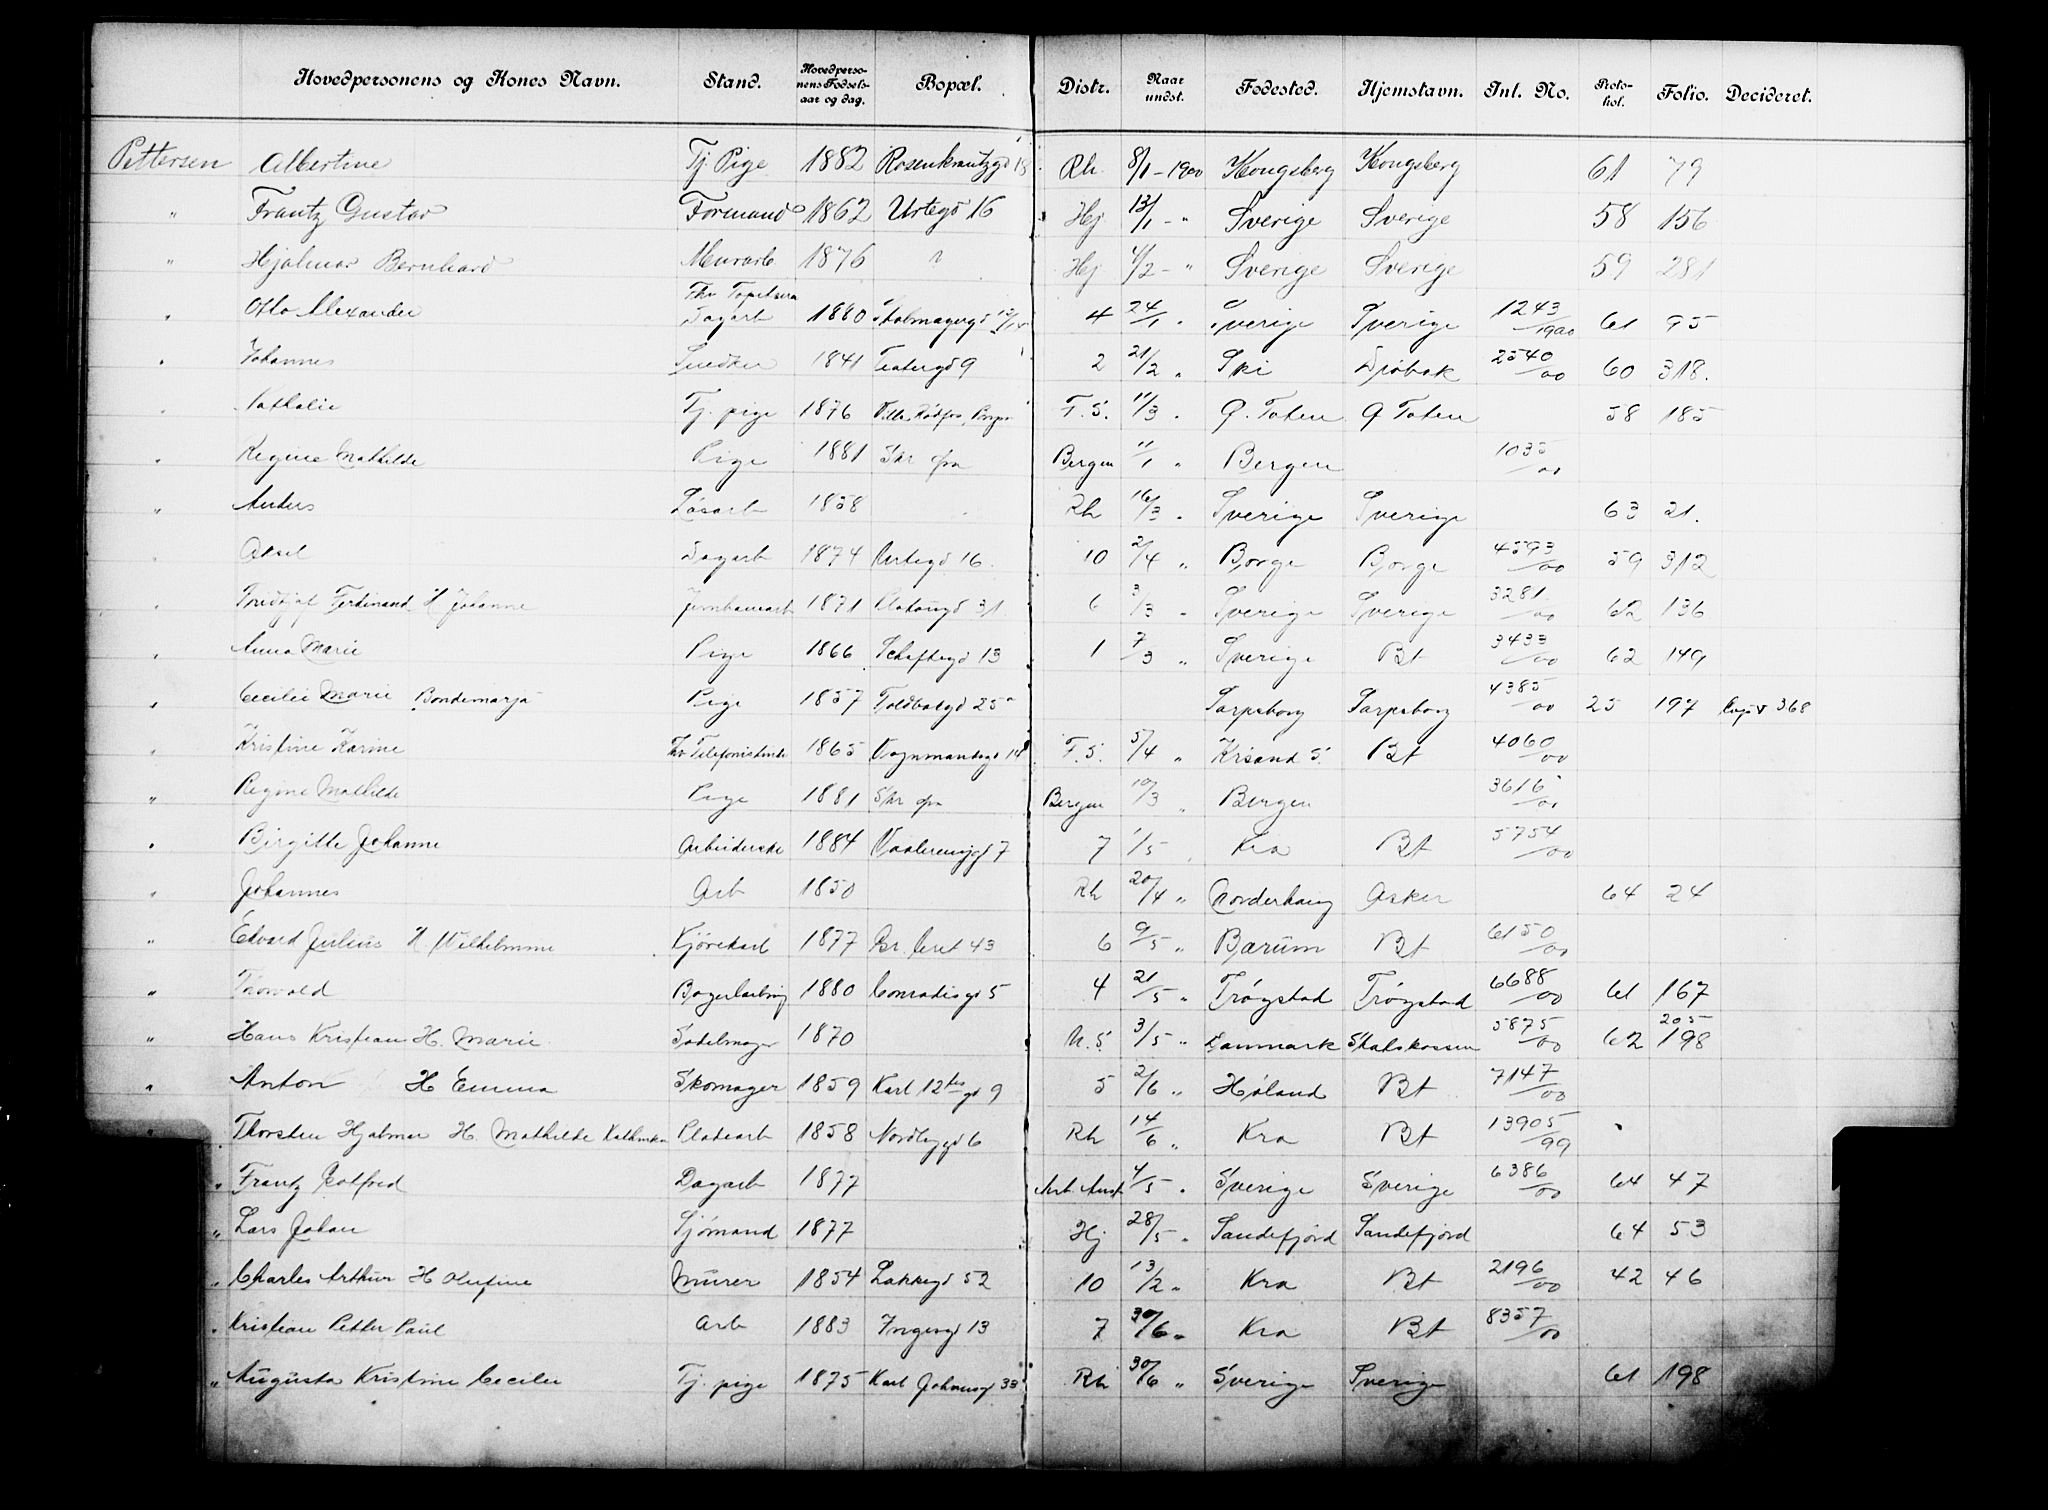 Hovedpersonens og Kones Navn. Stand. Hovedpersonens Fødselsaar og dag. Bopæl. Distr. Naar undst. Fødested. Hjemstavn. Int. No. Protokol. Folio. Decideret.
Pettersen Albertine Tj. Pige 1882 Rosenkrantzgd 18 Rh. 8/1 - 1900 Kongsberg Kongsberg 61 79
" Frantz Gustav Formand 1862 Urtegd 16 Hj 13/1 - " Sverige Sverige 58 156
" Hjalmar Bernhard Murarb 1876 ? Hj /2 - " Sverige Sverige 59 281
" Otto Alexander Fhv Dagarb 1880 12/14 4 24/1 " Sverige Sverige 1243/1900 61 95
" Johannes Snedker 1841 Teatergd 9 2 21/2 " Ski Drøbak 2540/00 60 318.
" Nathalie Tj. pige 1876 F. S. 11/3 " Ø. Toten Ø Toten 58 185
" Regine Mathilde Pige 1881 Bergen 11/1 " Bergen 1035/00
" Anders Løsarb 1858 Rh 16/3 " Sverige Sverige 63 21.
" Aksel Dagarb 1874 Urtegd 16. 10 2/4 " Borge Borge 4593/00 59 312
" Fridtjof Ferdinand H Johanne Jernbanearb 1871 31. 6 3/3 " Sverige Sverige 3281/00 62 136
" Anna Marie Pige 1866 Schaftegd 13 1 7/3 " Sverige Bt 3433/00 62 149
" Cecilie Marie Pige 1857 Toldbodgd 25 Sarpsborg Sarpsborg 4385/00 25 197 368
" Kristine Karine Fhv Telefonistinde 1865 Vognmandsgd 14 F. S. 5/4 " Krisand S. Bt 4060/00
" Regine Mathilde Pige 1881 Bergen 10/3 " Bergen 3616/00
" Birgitte Johanne Arbeiderske 1884 Vaalerenggd 7 7 1/5 " Kra Bt 5754/00
" Johannes Arb 1850 Rh 20/4 " Norderhaug Asker 64 24
" Edvard Julius H. Wilhelmine Kjørekarl 1877 43 6 9/5 " Bærum Bt 6150/00
" Thorvald Bagerlærling 1880 Conradisgd 5 4 21/5 " Trøgstad Trøgstad 6688/00 61 167
" Hans Kristian H. Marie Sadelmager 1870 N. S. 3/5 " Danmark Statskassen 5875/00 62 205 198
" Anton H Emma Skomager 1859 Karl 12tes gd 9 5 2/6 " Høland Bt 7147/00
" Thorsten Hjalmar H. Mathilde Kathinka Pladearb 1858 Nordbygd 6 Rh 14/6 " Kra Bt 13905/99
" Frantz Gotfred Dagarb 1877 Arb. Anst 4/5 " Sverige Sverige 6386/00 64 47
" Lars Johan Sjømand 1877 Hj 28/5 " Sandefjord Sandefjord 64 53
" Charles Arthur H Olufine Murer 1854 Lakkegd 52 10 13/2 " Kra Bt 2196/00 42 46
" Kristian Petter Paul Arb 1883 Ingesgd 13 7 30/6 " Kra Bt 8357/00
" Augusta Kristine Cecilie Tj. pige 1875 Karl Johansgd 33 Rh 30/6 " Sverige Sverige 61 198